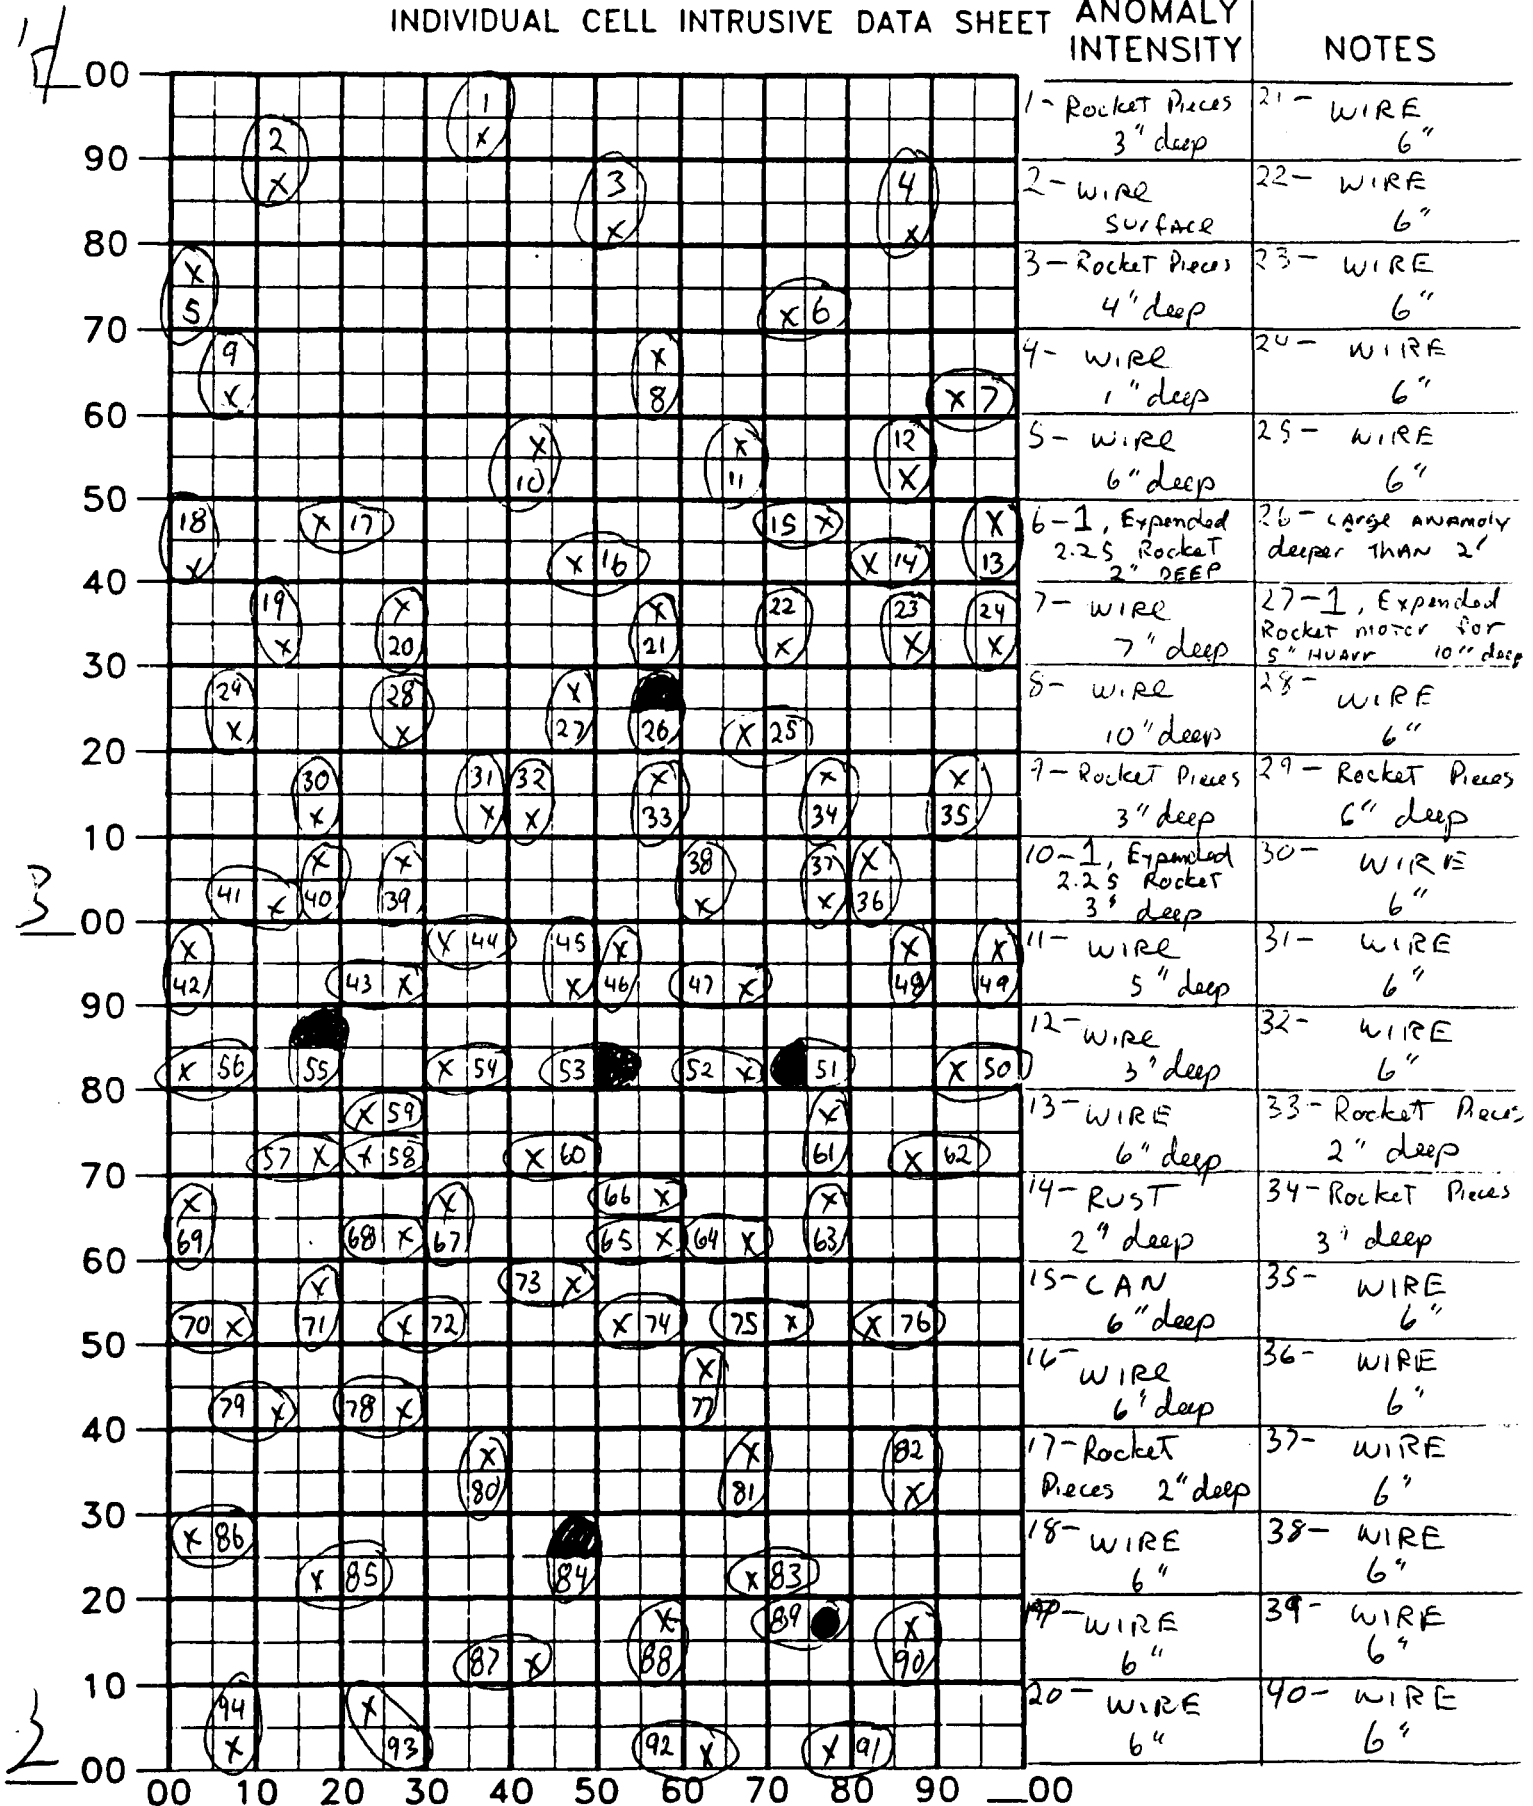 INDIVIDUAL CELL INTRUSIVE DATA SHEET
ANOMALY INTENSITY
NOTES
00
1
x
2
x
90
3
x
4
x
80
x
5
x 6
70
9
x
x
8
x 7
60
x
10
x
11
12
x
50
18
x
x 17
x 16
15 x
x 14
x
13
40
19
x
x
20
x
21
22
x
23
x
24
x
30
29
x
28
x
x
27
26
x 25
20
30
x
31
x
32
x
x
33
x
34
x
35
10
41 x
x
40
x
39
38
x
37
x
x
36
3 00
x
42
43 x
x 44
45
x
x
46
47 x
x
48
x
49
90
x 56
55
x 54
53
52 x
51
x 50
80
x 59
57 x
x 58
x 60
x
61
x 62
70
x
69
68 x
x
67
66 x
65 x
64 x
x
63
60
70 x
x
71
x 72
73 x
x 74
75 x
x 76
50
79 x
78 x
x
77
40
x
80
x
81
82
x
30
x 86
x 85
84
x 83
20
87 x
x
88
89
x
90
10
94
x
x
93
92 x
x 91
2 00
00 10 20 30 40 50 60 70 80 90 00
1- Rocket Pieces
3" deep
21- WIRE
6"
2- WIRE
SURFACE
22- WIRE
6"
3- Rocket Pieces
4" deep
23- WIRE
6"
4- WIRE
1" deep
24- WIRE
6"
5- WIRE
6" deep
25- WIRE
6"
6-1, Expended
2.25 Rocket
2" DEEP
26- LARGE ANAMOLY
deeper THAN 2'
7- WIRE
7" deep
27-1, Expended
Rocket motor for
5" HVARR 10" deep
8- WIRE
10" deep
28- WIRE
6"
9- Rocket Pieces
3" deep
29- Rocket Pieces
6" deep
10-1, Expended
2.25 Rocket
3" deep
30- WIRE
6"
11- WIRE
5" deep
31- WIRE
6"
12- WIRE
3" deep
32- WIRE
6"
13- WIRE
6" deep
33- Rocket Pieces
2" deep
14- RUST
2" deep
34- Rocket Pieces
3" deep
15- CAN
6" deep
35- WIRE
6"
16- WIRE
6" deep
36- WIRE
6"
17- Rocket
Pieces 2" deep
37- WIRE
6"
18- WIRE
6"
38- WIRE
6"
19- WIRE
6"
39- WIRE
6"
20- WIRE
6"
40- WIRE
6"